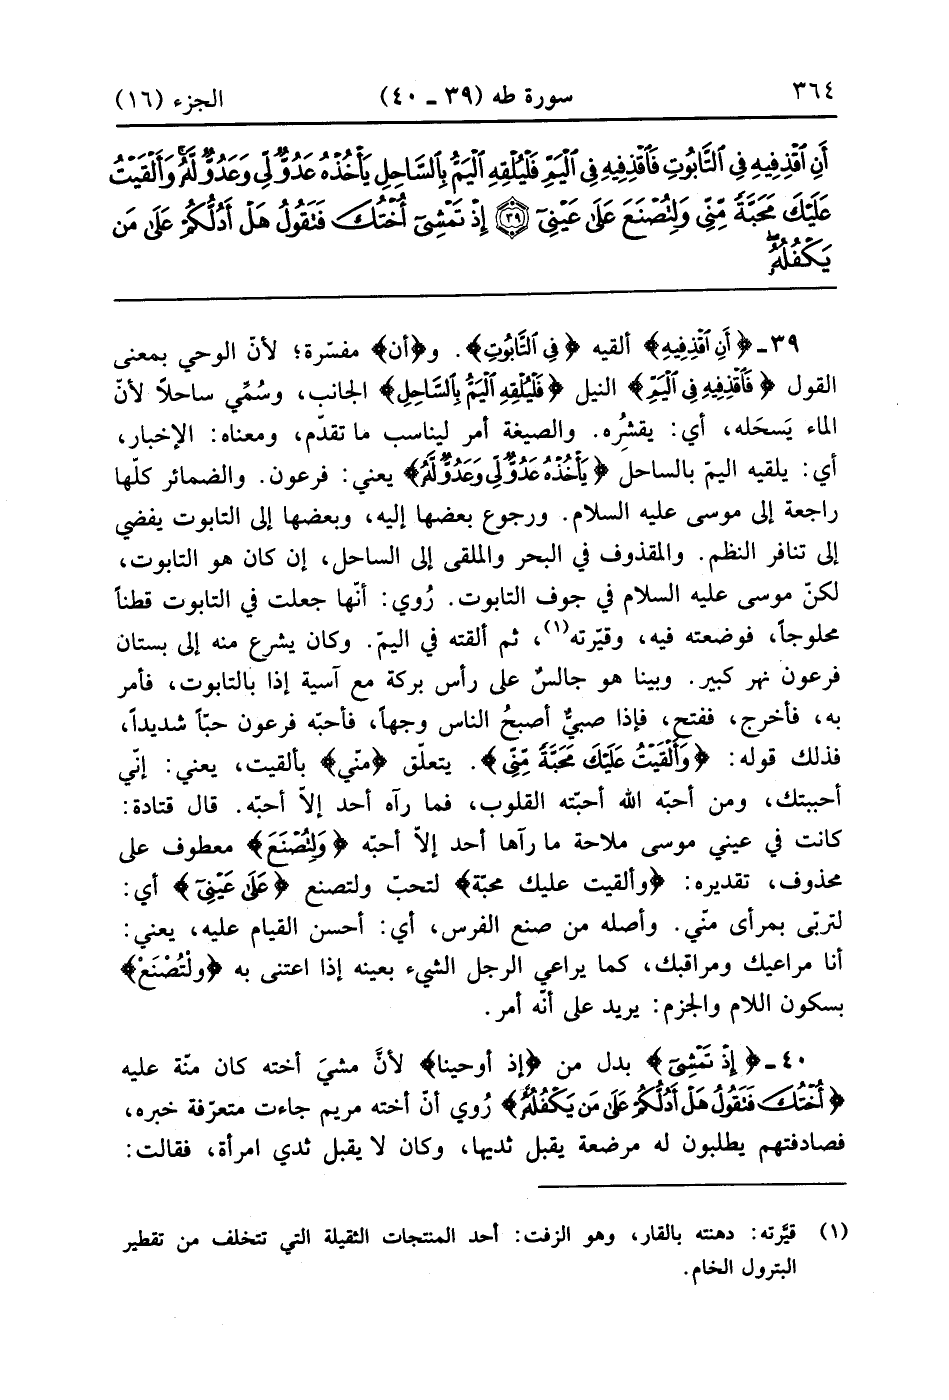 ٣٦٤
سورة طه (٣٩ ـ ٤٠)
الجزء (١٦)
أَنِ ٱقْذِفِيهِ فِى ٱلتَّابُوتِ فَٱقْذِفِيهِ فِى ٱلْيَمِّ فَلْيُلْقِهِ ٱلْيَمُّ بِٱلسَّاحِلِ يَأْخُذْهُ عَدُوٌّ لِّى وَعَدُوٌّ لَّهُۥ ۚ وَأَلْقَيْتُ
عَلَيْكَ مَحَبَّةً مِّنِّى وَلِتُصْنَعَ عَلَىٰ عَيْنِىٓ ﴿٣٩﴾ إِذْ تَمْشِىٓ أُخْتُكَ فَتَقُولُ هَلْ أَدُلُّكُمْ عَلَىٰ مَن
يَكْفُلُهُۥ ۖ
٣٩ ـ ﴿أَنِ ٱقْذِفِيهِ﴾ ألقيه ﴿فِى ٱلتَّابُوتِ﴾. و﴿أن﴾ مفسّرة؛ لأنّ الوحي بمعنى
القول ﴿فَٱقْذِفِيهِ فِى ٱلْيَمِّ﴾ النيل ﴿فَلْيُلْقِهِ ٱلْيَمُّ بِٱلسَّاحِلِ﴾ الجانب، وسُمِّي ساحلاً لأنّ
الماء يَسحَله، أي: يقشُره. والصيغة أمر ليناسب ما تقدّم، ومعناه: الإخبار،
أي: يلقيه اليمّ بالساحل ﴿يَأْخُذْهُ عَدُوٌّ لِّى وَعَدُوٌّ لَّهُ﴾ يعني: فرعون. والضمائر كلّها
راجعة إلى موسى عليه السلام. ورجوع بعضها إليه، وبعضها إلى التابوت يفضي
إلى تنافر النظم. والمقذوف في البحر والملقى إلى الساحل، إن كان هو التابوت،
لكنّ موسى عليه السلام في جوف التابوت. رُوي: أنّها جعلت في التابوت قطناً
محلوجاً، فوضعته فيه، وقيّرته(١)، ثم ألقته في اليمّ. وكان يشرع منه إلى بستان
فرعون نهر كبير. وبينا هو جالسٌ على رأس بركة مع آسية إذا بالتابوت، فأمر
به، فأخرج، ففتح، فإذا صبيٌّ أصبحُ الناس وجهاً، فأحبّه فرعون حبّاً شديداً،
فذلك قوله: ﴿وَأَلْقَيْتُ عَلَيْكَ مَحَبَّةً مِّنِّى﴾. يتعلّق ﴿منّي﴾ بألقيت، يعني: إنّي
أحببتك، ومن أحبّه الله أحبّته القلوب، فما رآه أحد إلاّ أحبّه. قال قتادة:
كانت في عيني موسى ملاحة ما رآها أحد إلاّ أحبّه ﴿وَلِتُصْنَعَ﴾ معطوف على
محذوف، تقديره: ﴿وألقيت عليك محبّة﴾ لتحبّ ولتصنع ﴿عَلَىٰ عَيْنِىٓ﴾ أي:
لتربّى بمرأى منّي. وأصله من صنع الفرس، أي: أحسن القيام عليه، يعني:
أنا مراعيك ومراقبك، كما يراعي الرجل الشيء بعينه إذا اعتنى به ﴿ولْتُصْنَعْ﴾
بسكون اللام والجزم: يريد على أنّه أمر.
٤٠ ـ ﴿إِذْ تَمْشِىٓ﴾ بدل من ﴿إذ أوحينا﴾ لأنَّ مشيَ أخته كان منّة عليه
﴿أُخْتُكَ فَتَقُولُ هَلْ أَدُلُّكُمْ عَلَىٰ مَن يَكْفُلُهُۥ﴾ رُوي أنّ أخته مريم جاءت متعرّفة خبره،
فصادفتهم يطلبون له مرضعة يقبل ثديها، وكان لا يقبل ثدي امرأة، فقالت:
(١) قيَّرته: دهنته بالقار، وهو الزفت: أحد المنتجات الثقيلة التي تتخلف من تقطير
البترول الخام.